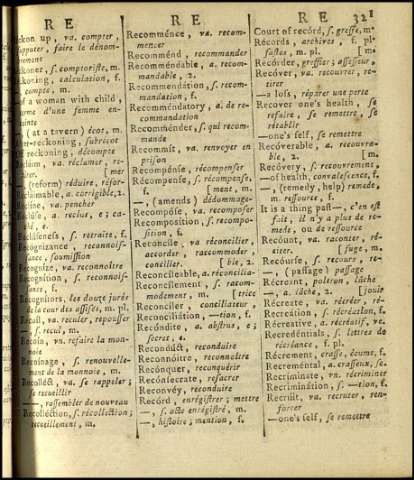 R E
R E
R E
321
eckon up, va. compter,
supputer, faire le dénom-
brement
eckoner, s. comptoriste, m.
eckoning, calculation, f.
compte, m.
of a woman with child,
terme d'une femme en-
ceinte
(at a tavern) écot, m.
reckoning, subrécot
reckoning, décompte
claim, va. réclamer, ré-
[mer
(reform) réduire, réfor-
claimable, a. corrigible, 2.
cline, va. pencher
cluse, a. reclus, e; ca-
ché, e
cluseness, s. retraite, f.
ecognizance, reconnois-
sance, soumission
ecognize, va. reconnoître
ecognition, s. reconnoiss-
f.
ecognitors, les douze jurés
de la cour des assises, m. pl.
ecoil, va. reculer, repousser
—s. recul, m.
ecoin, vn. refaire la mon-
noie
ecoinage, s. renouvelle-
ment de la monnoie, m.
ecolléct, va. se rappeler;
se recueillir
—, rassembler de nouveau
ecolléction, s. récollection;
recueillement, m.
Recomménce, va. recom-
mencer
Recomménd, recommander
Recomméndable, a. recom-
mandable, 2.
Recommendátion, s. recom-
mandation, f.
Recomméndatory, a. de re-
commandation
Recommender, s. qui recom-
mande
Recommít, va. renvoyer en
prison
Recompénse, récompenser
Recompense, s. récompense,
f. [ment, m.
—, (amends) dédommage-
Recompóse, va. recomposer
Recomposition, s. recompo-
sition, f.
Reconcíle, va. réconcilier,
accorder, raccommoder
[bie, 2.
Reconcileable, a. réconcilia-
Reconcilement, s. raccom-
modement, m. [trice
Reconciler, conciliateur,
Reconciliátion, —tion, f.
Recóndite, a. abstrus, e;
secret, e.
Recondúct, reconduire
Reconnóitre, reconnoître
Reconquer, reconquérir
Reconsecrate, resacrer
Reconvéy, reconduire
Recórd, enrégistrer; mettre
—, s. acte enrégistré, m.
—, histoire; mention, f.
Court of recórd, s. greffe, m.
Récords, archives, f. pl.
fastes, m. pl. [m.
Recórder, greffier; assesseur,
Recóver, va. recouvrer, ré-
tirer
—a loss, réparer une perte
Recover one's health, se
refaire, se remettre, se
rétablir
—one's self, se remettre
Recoverable, a. recouvra-
ble, 2. [m.
Recóvery, s. recouvrement,
—of health, convalescence, f.
—, (remedy, help) remede,
m. ressource, f.
It is a thing past—, c'en est
fait, il n'y a plus de re-
mede, ou de ressource
Recóunt, va. raconter, ré-
citer. [fuge, m.
Recóurse, s. recours, re-
—, (passage) passage
Récreant, poltron, lâche
—, a. lâche, 2. [jouir
Récreate, va. récréer, ré-
Recreátion, s. récréation, f.
Récreative, a. récréatif, ve.
Recredéntials, s. lettres de
récréance, f. pl.
Récrement, crasse, écume, f.
Recreméntal, a. crasseux, se.
Recríminate, va. récriminer
Recriminátion, s. —tion, f.
Recrúit, va. recruter, ren-
forcer
—one's self, se remettre